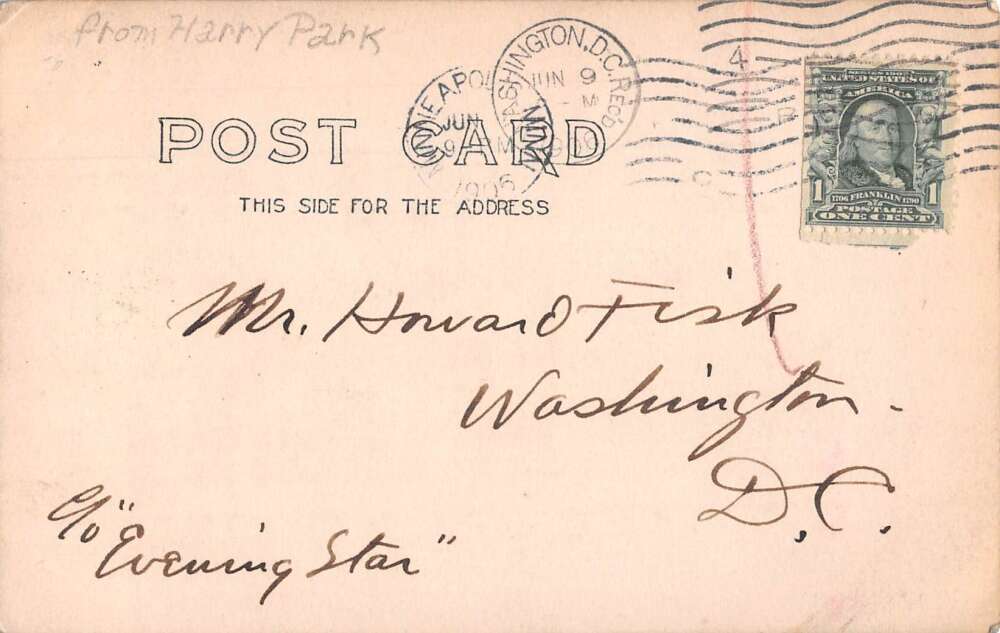 from Harry Park
MINNEAPOLIS MINN
JUN
9 M
1905
WASHINGTON, D.C. REC'D
JUN 9
M
4
SERIES 1902
UNITED STATES OF
AMERICA
1 1706 FRANKLIN 1790 1
POSTAGE
ONE CENT
POST CARD
THIS SIDE FOR THE ADDRESS
Mr. Howard Fisk
Washington.
D.C.
c/o "Evening Star"